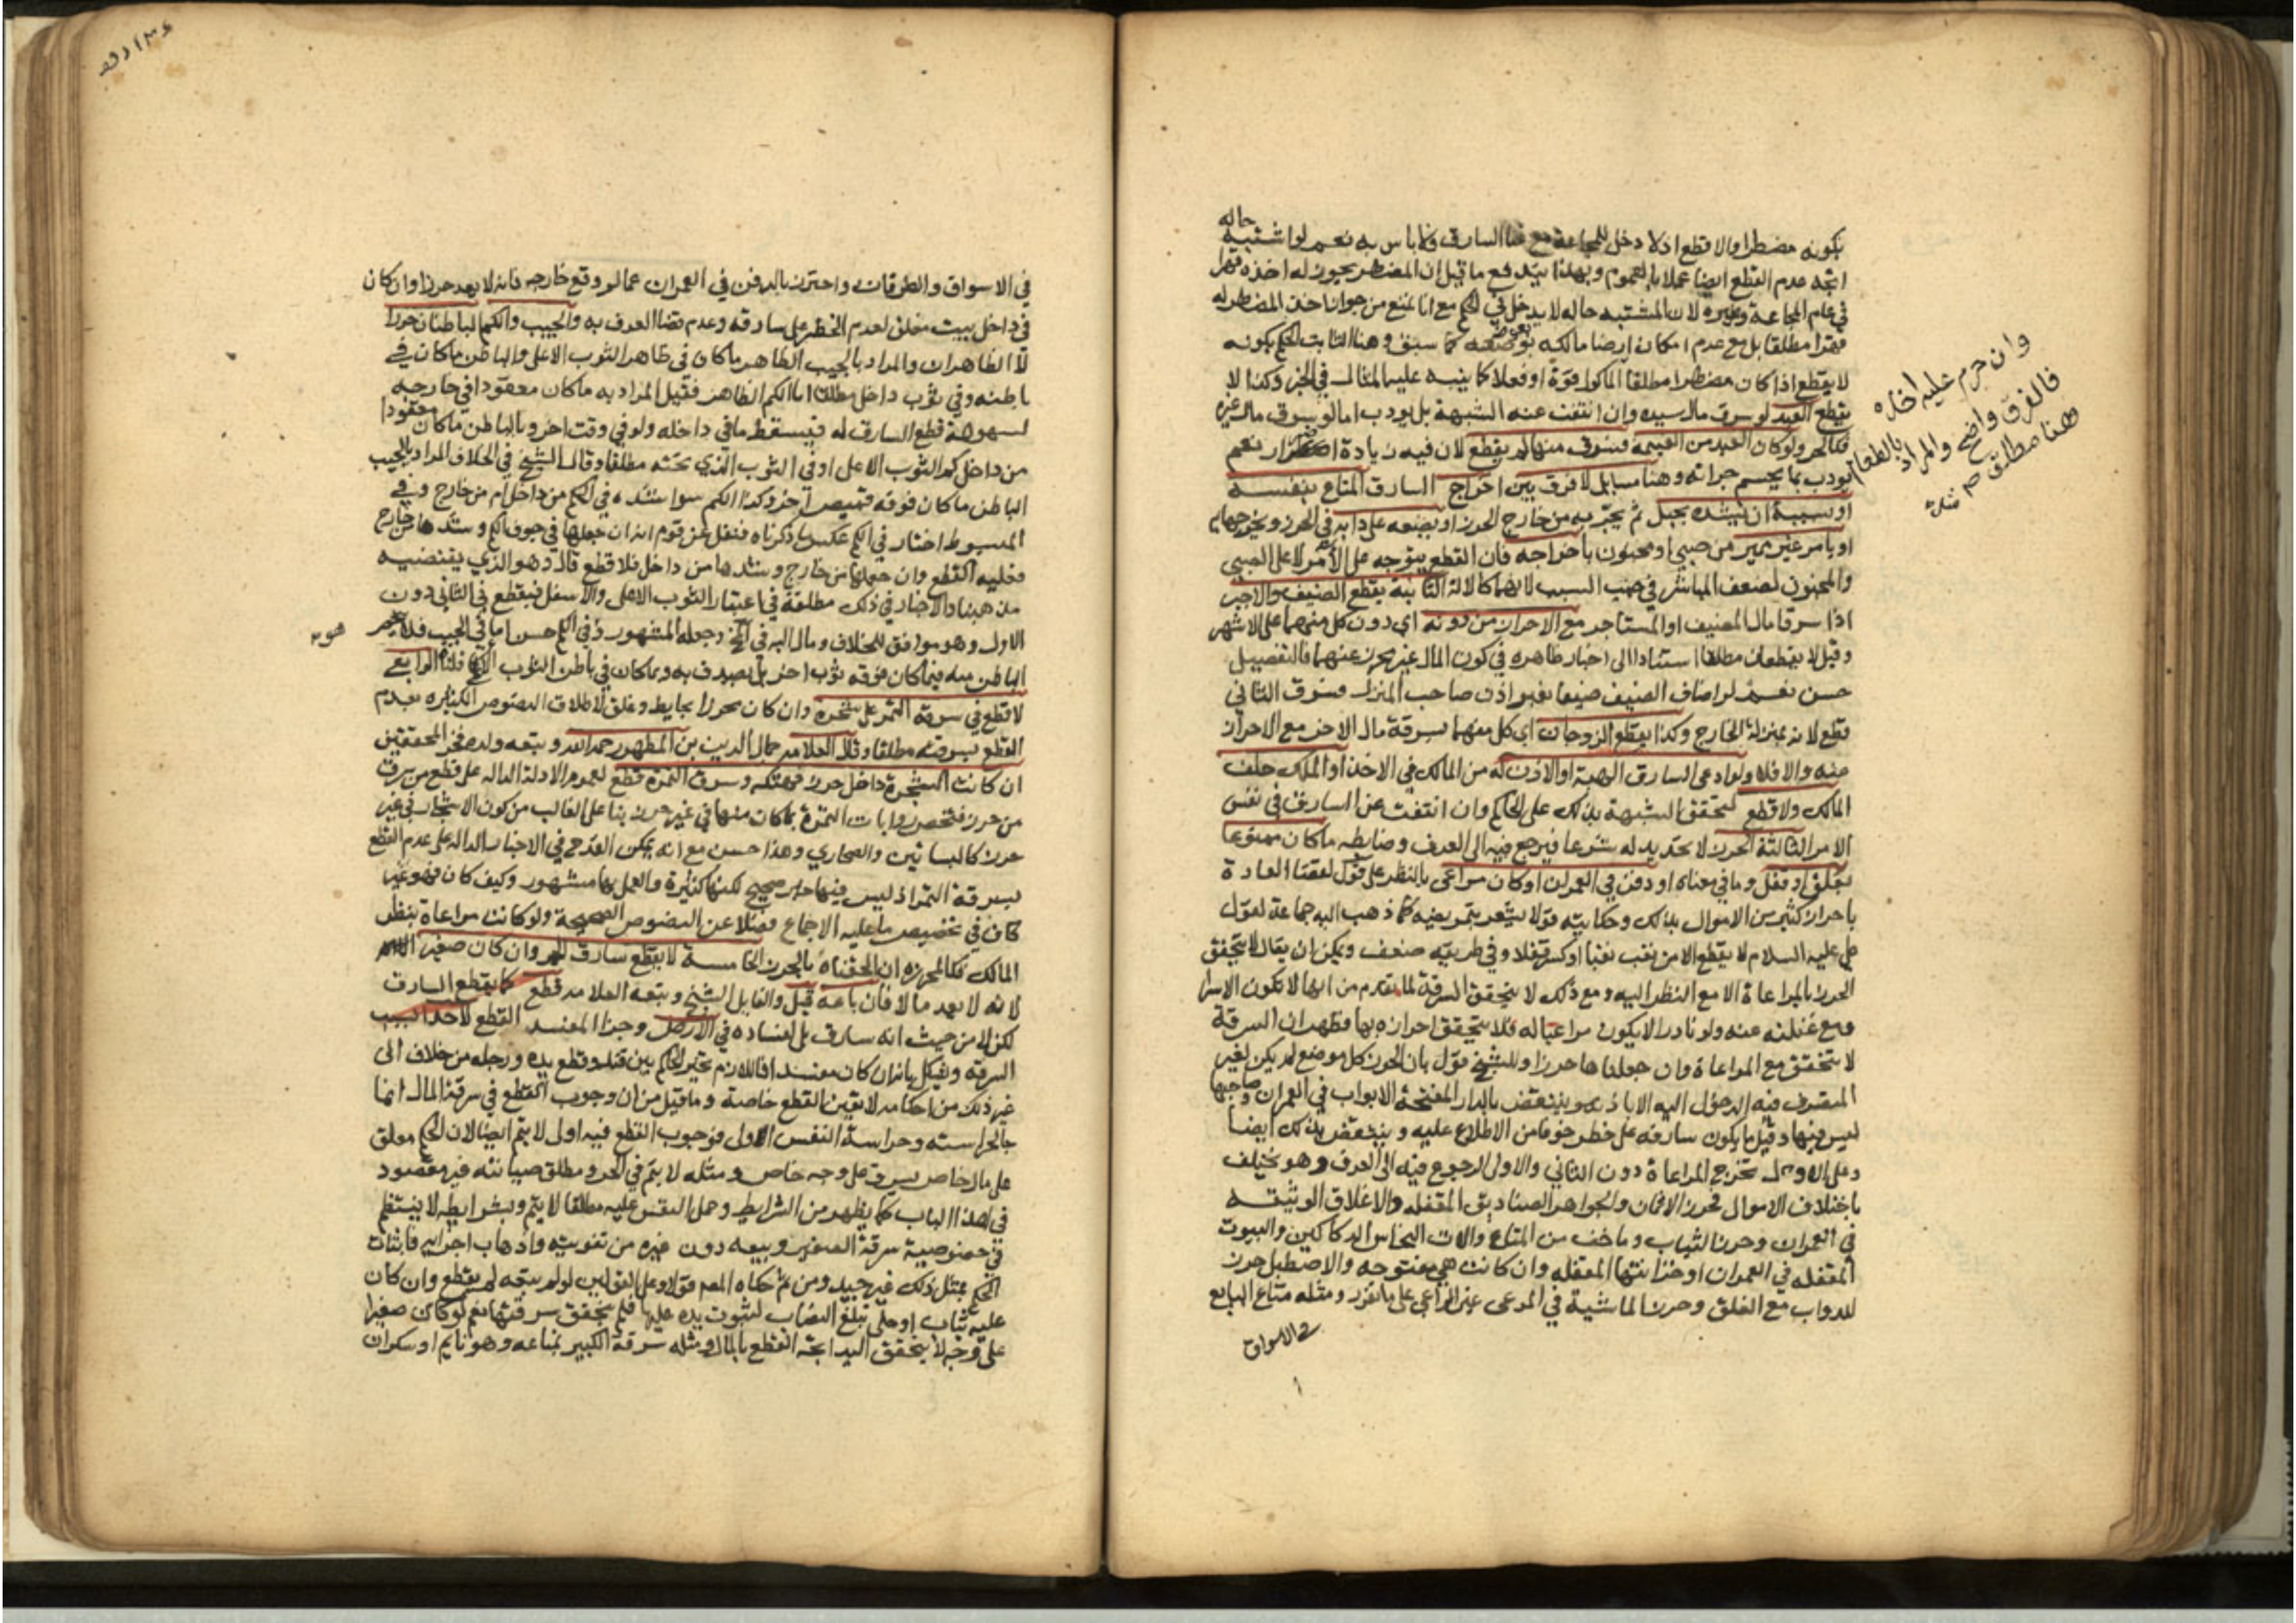 حاله
بكونه مضطرا والا قطع اذ لا دخل للمجاعة مع غنا السارق ولا باس به نعم لو اشتبه
اتجه عدم القطع ايضا عملا بالعموم وبهذا يندفع ما قيل ان المضطر يجوز له اخذه قهرا
في عام المجاعة وغيره لان المشتبه حاله لا يدخل في الحكم مع انا نمنع من جواز اخذ المضطر له
قهرا مطلقا بل مع عدم امكان ارضا مالكه بعوضه كما سبق وهنا الثابت الحكم بكونه
لا يقطع اذا كان مضطرا مطلقا الماكول قوة او فعلا كما ينبه عليه المثال في الخبز وكذا لا
يقطع العبد لو سرق مال سيده وان انتفت عنه الشبهة بل يودب اما لو سرق مال غيره
فكالحر ولو كان العبد من الغنيمة فسرق منها لم يقطع لان فيه زيادة اضرار نعم
يودب بما يحسم جراته وهنا مسايل لا فرق بين اخراج السارق المتاع بنفسه
او بسببه ان يشده بحبل ثم يجر به من خارج الحرز او يضعه على دابه في الحرز ويخرجها به
او يامر غير مميز من صبي او مجنون باخراجه فان القطع يتوجه على الامر لا على الصبي
والمجنون لضعف المباشر في جنب السبب لانهما كالالة الثانية يقطع الضيف والاجير
اذا سرقا مال المضيف او المستاجر مع الاحراز من دونه اي دون كل منهما على الاشهر
وقيل لا يقطعان مطلقا استنادا الى اخبار ظاهره في كون المال غير محرز عنهما فالتفصيل
حسن نعم لو اضاف الضيف ضيفا بغير اذن صاحب المنزل فسرق الثاني
قطع لانه بمنزلة الخارج وكذا يقطع الزوجان اي كل منهما بسرقة مال الاخر مع الاحراز
منه والا فلا ولو ادعى السارق الهبة او الاذن له من المالك في الاخذ او الملك حلف
المالك ولا قطع لتحقق الشبهة بذلك على الحاكم وان انتفت عن السارق في نفس
الامر الثالثة الحرز لا تحديد له شرعا فيرجع فيه الى العرف وضابطه ما كان ممنوعا
بغلق او قفل وما في معناه او دفن في العمران او كان مراعى بالنظر على قول لقضا العادة
باحراز كثير من الاموال بذلك وحكايته قولا يشعر بتمريضه كما ذهب اليه جماعة لقول
علي عليه السلام لا يقطع الا من نقب نقبا او كسر قفلا وفي طريقه ضعف ويمكن ان يقال لا يتحقق
الحرز بالمراعاة الا مع النظر اليه ومع ذلك لا يتحقق السرقة لما تقدم من انها لا تكون الا سرا
ومع غفلته عنه ولو نادرا لا يكون مراعيا له فلا يتحقق احرازه بها فظهر ان السرقة
لا تتحقق مع المراعاة وان جعلناها حرزا وللشيخ قول بان الحرز كل موضع لم يكن لغير
المتصرف فيه الدخول اليه الا باذنه وينتقض بالدار المفتحة الابواب في العمران وصاحبها
ليس فيها وقيل ما يكون سارقه على خطر خوفا من الاطلاع عليه وينتقض بذلك ايضا
وعلى الاول تخرج المراعاة دون الثاني والاولى الرجوع فيه الى العرف وهو يختلف
باختلاف الاموال فحرز الاثمان والجواهر الصناديق المقفله والاغلاق الوثيقة
في العمران وحرز الثياب وما خف من المتاع والات النحاس الدكاكين والبيوت
المقفله في العمران او خزانتها المقفله وان كانت هي مفتوحه والاصطبل حرز
للدواب مع الغلق وحرز الماشية في المرعى عين الراعي على ما تقرر ومثله متاع البايع
في الاسواق
وان حرم عليه اخذه
فالفرق واضح والمراد بالطعام
هنا مطلق صح
في الاسواق والطرقات واحترز بالدفن في العمران عما لو وقع خارجه فانه لا يعد حرزا وان كان
في داخل بيت مغلق لعدم الخطر على سارقه وعدم قضا العرف به والجيب والكم الباطنان حرزا
لا الظاهران والمراد بالجيب الظاهر ما كان في ظاهر الثوب الاعلى والباطن ما كان في
باطنه وفي ثوب داخل مطلقا اما الكم الظاهر فقيل المراد به ما كان معقودا في خارجه
لسهولة قطع السارق له فيسقط ما في داخله ولو في وقت اخر وبالباطن ما كان معقودا
من داخل كم الثوب الاعلى او في الثوب الذي تحته مطلقا وقال الشيخ في الخلاف المراد بالجيب
الباطن ما كان فوقه قميص آخر وكذا الكم سوا شده في الكم من داخل ام من خارج وفي
المبسوط اختار في الكم عكس ما ذكرناه فنقل عن قوم انه ان جعلها في جوف الكم وشدها من خارج
فعليه القطع وان جعلها من خارج وشدها من داخل فلا قطع قال وهو الذي يقتضيه
مذهبنا والاخبار في ذلك مطلقة في اعتبار الثوب الاعلى والاسفل فيقطع في الثاني دون
الاول وهو موافق للخلاف ومال اليه في المخ وجعله المشهور وفي الكم حسن اما في الجيب فلا ينحصر
الباطن منه فيما كان فوقه ثوب اخر بل يصدف به وبما كان في باطن الثوب الاعلى كما قلنا الرابعة
لا قطع في سرقة الثمر على شجره وان كان محرزا بحايط وغلق لاطلاق النصوص الكثيره بعدم
القطع بسرقته مطلقا وقال العلامه جمال الدين بن المطهر رحمه الله وتبعه ولده فخر المحققين
ان كانت الشجرة داخل حرز فهتكه وسرق الثمرة قطع لعموم الادلة الداله على قطع من سرق
من حرز فتختص روايات الثمرة بما كان منها في غير حرز بنا على الغالب من كون الاشجار في غير
حرز كالبساتين والصحاري وهذا حسن مع انه يمكن القدح في الاخبار الداله على عدم القطع
بسرقة الثمر اذ ليس فيها خبر صحيح لكنها كثيرة والعمل بها مشهور وكيف كان فهو غير
كاف في تخصيص ما عليه الاجماع فضلا عن النصوص الصحيحة ولو كانت مراعاة بنظر
المالك فكالمحرزه ان الحقناه بالحرز الخامسة لا يقطع سارق الحر وان كان صغيرا
لانه لا يعد مالا فان باعه قيل والقايل الشيخ وتبعه العلامه قطع كما يقطع السارق
لكن لا من حيث انه سارق بل لفساده في الارض وجزا المفسد القطع لا حد البسبب
السرقة ويشكل بانه ان كان مفسدا فاللازم تخير الحاكم بين قتله وقطع يده ورجله من خلاف الى
غير ذلك من احكامه لا تعين القطع خاصة وما قيل من ان وجوب القطع في سرقة المال انما
جا لحراسته وحراسة النفس اولى فوجوب القطع فيه اولى لا يتم ايضا لان الحكم معلق
على مال خاص يسرق على وجه خاص ومثله لا يتم في الحر ومطلق صيانته غير مقصود
في هذا الباب كما يظهر من الشرايط وحمل النفس عليه مطلقا لا يتم وبشرايطه لا ينتظم
في خصوصية سرقة الصغير وبيعه دون غيره من تفويته واذهاب اجزايه فاثبات
الحكم بمثل ذلك غير جيد ومن ثم حكاه المصم قولا وعلى القولين لو لم يبعه لم يقطع وان كان
عليه ثياب او حلي تبلغ النصاب لثبوت يده عليها فلم يتحقق سرقتهما نعم لو كان صغيرا
على وجه لا يتحقق اليد اتجه القطع بالمال ومثله سرقة الكبير بمتاعه وهو نايم او سكران